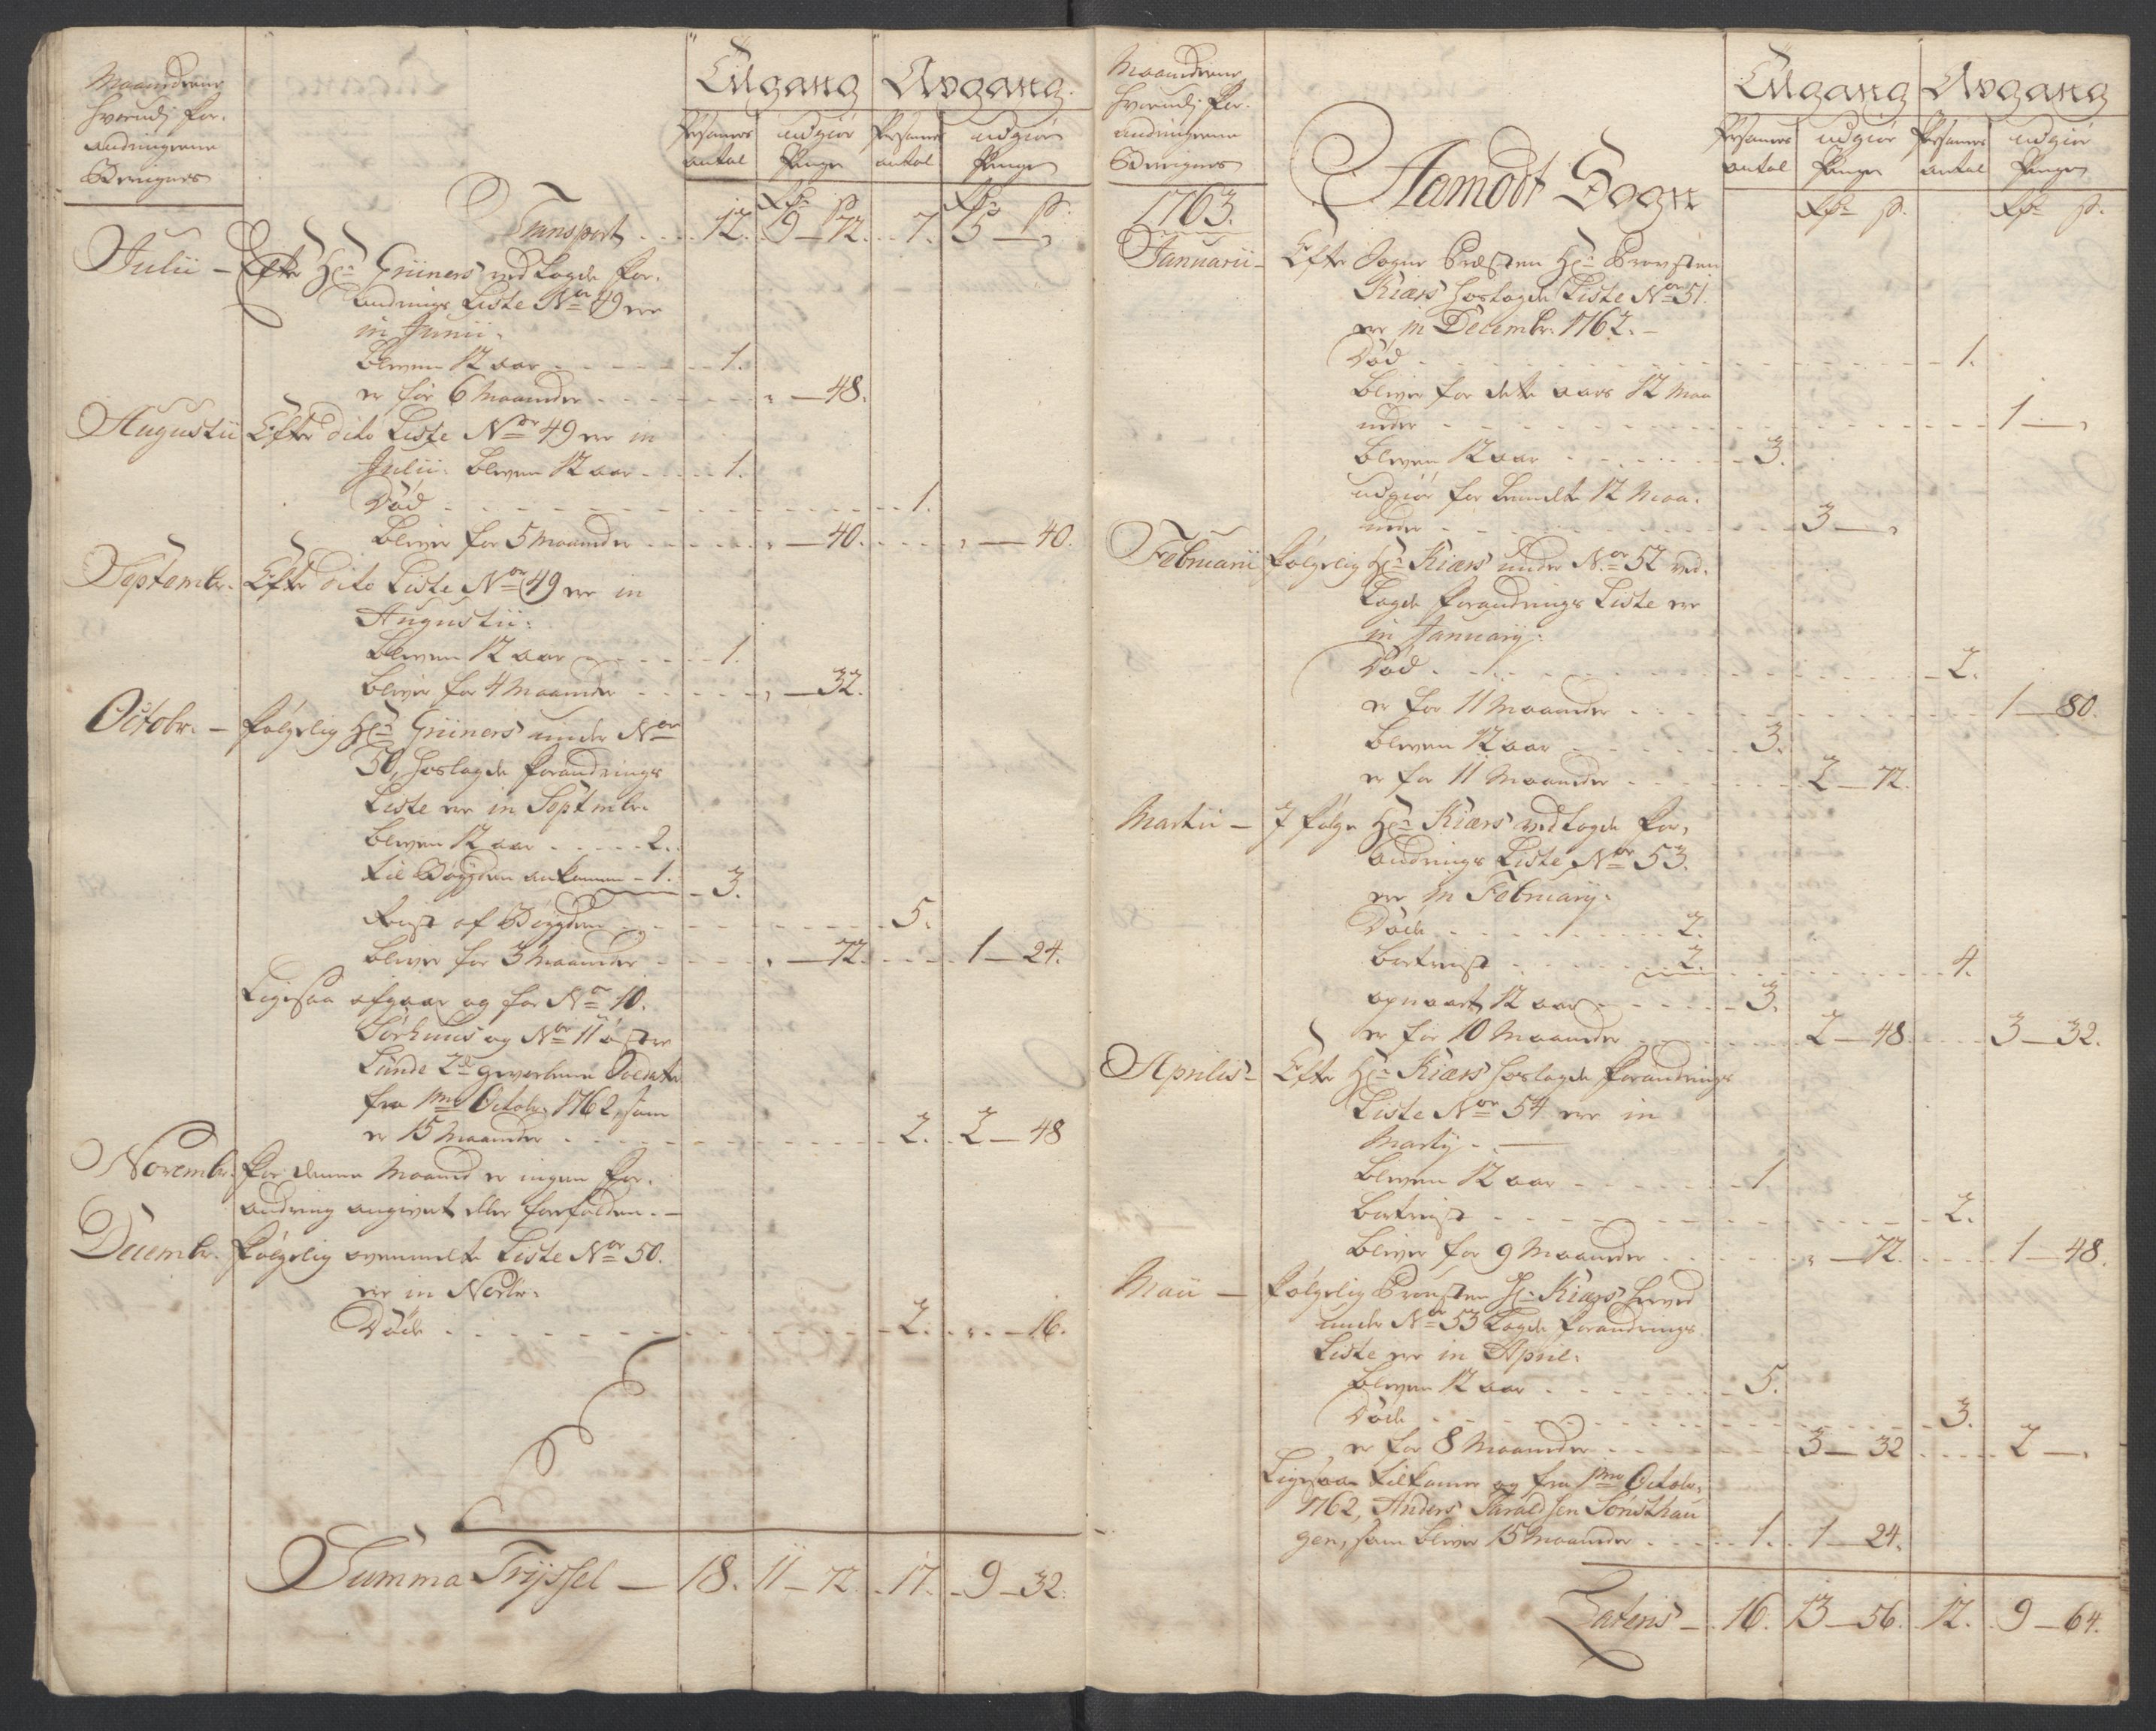 Maanederne
hvorudj For-
andringerne
Berignes
Tilgang Avgang.
Persones antal udgiør Penge Persones antal udgiør Penge
Rdr ß Rdr ß
Transport . . 12. 9 – 72. . 7. 5 – „
Julii – Efter Hr Grüners ved Lagde For-
andrings Liste No 49 ere
in Junii.
bleven 12 aar - - - - - 1.
er for 6 Maaneder - - - - - „ – 48.
Augustii Efter dito Liste No 49 ere in
Julii: bleven 12 aar - - - 1.
Død - - - - - - - 1.
bliver for 5 Maaneder - - - - „ – 40. - - - „ – 40.
Septembr. Efter dito Liste No 49 ere in
Augustii:
bleven 12 aar - - - - 1.
bliver for 4 Maaneder - - - - „ – 32.
Octobr. – følgelig Hr Grüners under No
50, hoslagde forandrings
Liste ere in Septembr.
bleven 12 aar - - - - 2.
til Bøygden ankommen - 1. - 3.
Reist af Bøygden - - - - - 5.
bliver for 3 Maaneder - - - - „ – 72. - - - 1 – 24.
Ligesaa afgaar og for No 10.
Sørhuus og No 11 østre
Lunde 2de gevorbene Soldater
fra 1mo Octobr. 1762, som
er 15 Maaneder - - - - - 2. 2 – 48
Novembr. For denne Maaned er ingen For-
andring angivet eller forefalden. –
Decembr. følgelig ovenmelte Liste No 50.
ere in Novbr.
Døde - - - - - - - 2. „ – 16.
Summa Trÿssel – 18. 11 – 72. 17. 9 – 32.
Maanederne
hvorudj For-
andringerne
Berignes
Tilgang Avgang
Persones antal udgiør Penge Persones antal udgiør Penge
Rdr ß. Rdr ß.
Aamodt Sogn
1763.
Januarii – Efter Sogne Præsten Hr Provsten
Kiærs hoslagde Liste No 51.
ere in Decembr. 1762. –
Død - - - - - - - 1.
bliver for dette aars 12 Maa
neder - - - - - - - 1 – „
bleven 12 aar - - - - - 3.
udgiør for bemelte 12 Maa-
neder - - - - - - 3 – „
Februarii følgelig Hr Kiærs under No 52 ved-
Lagde forandrings Liste ere
in Januarij:
Død - - - - - - - 2.
er for 11 Maaneder - - - - - 1 – 80.
bleven 12 aar - - - - - 3.
er for 11 Maaneder - - - - - 2 – 72.
Martii – J følge Hr Kiærs vedlagde For-
andrings Liste No 53.
ere in Februarij:
Døde - - - - - - 2.
bortreist - - - - - 2. - - - - 4.
opnaaet 12 aar - - - - 3.
er for 10 Maaneder - - - - 2 – 48. - - 3 – 32.
Aprilis – Efter Hr Kiærs hoslagde forandrings
Liste No 54 ere in
Martij. –
bleven 12 aar - - - - - 1
bortreist - - - - - - - 2.
bliver for 9 Maaneder - - - - „ – 72. - - - 1 – 48.
Maii – følgelig Provsten Hr Kiærs herved
under No 53 Lagde forandrings
Liste ere in April:
bleven 12 aar - - - - - 5.
Døde - - - - - - - 3.
er for 8 Maaneder - - - - 3 – 32 - - - 2 – „
Ligesaa tilkommer og fra 1mo Octobr.
1762, Anders Taraldsen Sønsthau
gen, som bliver 15 Maaneder - - - 1. 1 – 24.
Lateris – 16. 13 – 56. 12. 9 – 64.